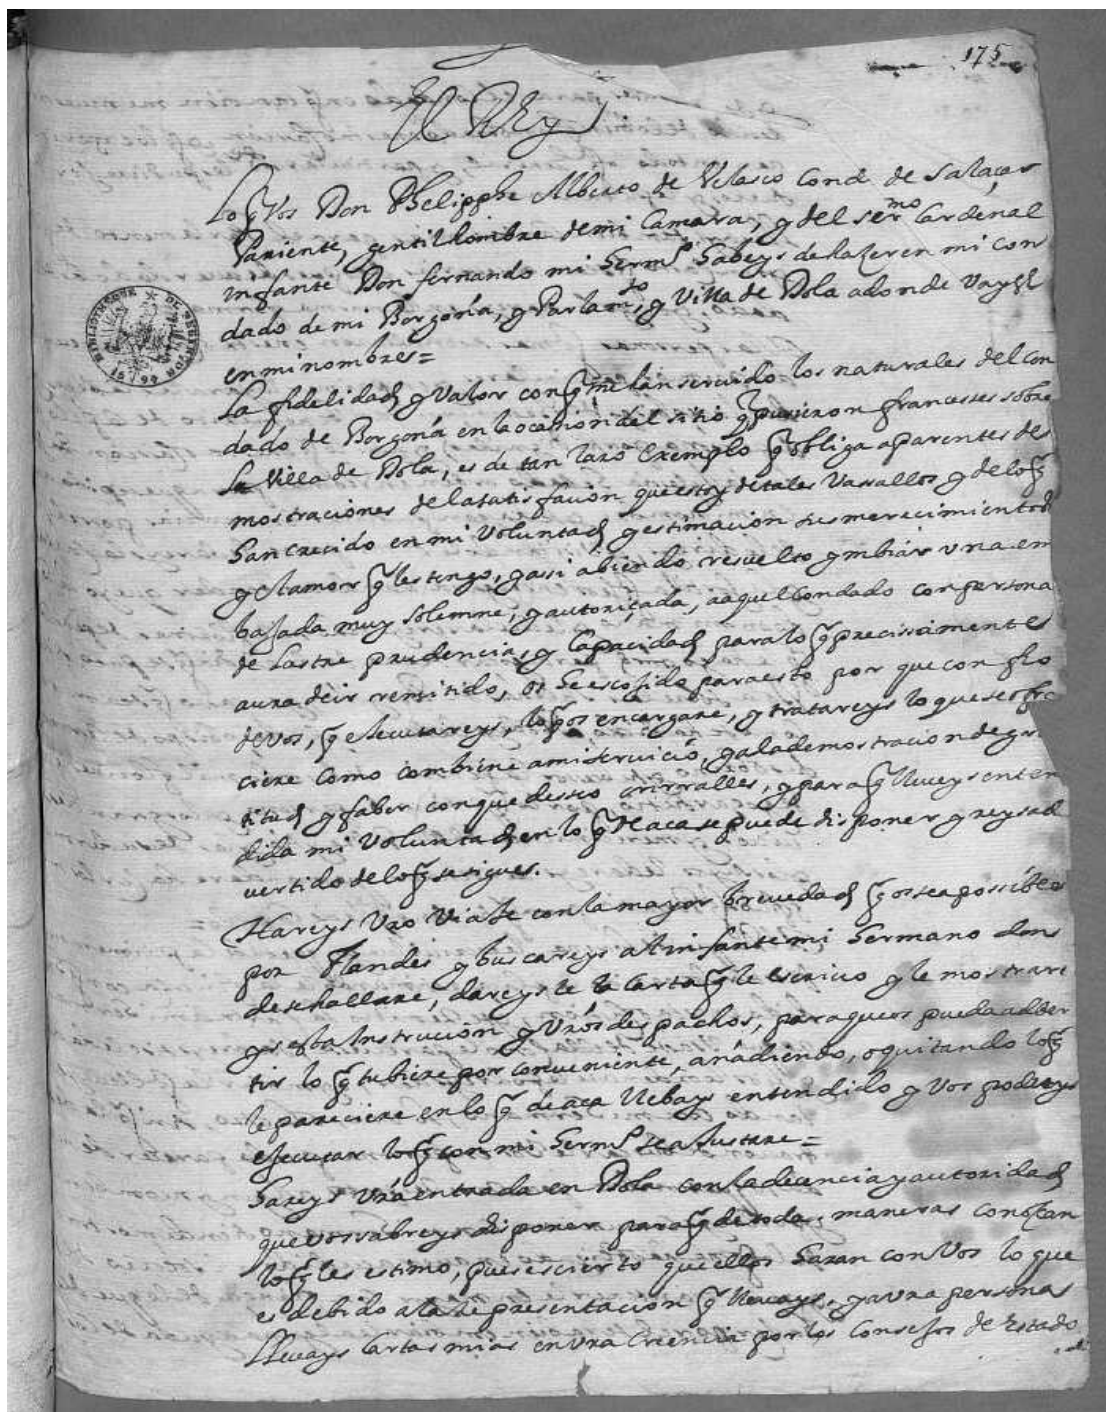 175
El Rey
Lo q̃ Vos Don Phelipphe Alberto de Velasco Conde de Salaçar
Pariente, gentilhombre de mi Camara, y del sermo Cardenal
infante Don fernando mi Hermo Habeys de hazer en mi con
dado de mi Borgoña, y Parlamto, y Villa de Dola adonde Vays
en mi nombre=
La fidelidad y Valor con q̃ me han seruido los naturales del Con
dado de Borgoña en la ocasion del sitio q̃ pusieron franceses sobre
La Villa de Dola, es de tan raro Exemplo q̃ obliga aparentes de
mostraciones de la satisfacion que estoy de tales Vassallos y de lo q̃
han crecido en mi Voluntad y estimacion sus merecimientos
y el amor q̃ les tengo, y assi abiendo resuelto ymbiar vna em
bajada muy solemne, y autoriçada, a aquel Condado con persona
de Lastre prudencia, y Capacidad para lo q̃ precissamente
aura de ir remitido, os he escojido para esto por que confio
de vos, q̃ executareys, lo q̃ os encargare, y tratareys lo que se ofre
ciere como combiene a mi seruicio, y a la demostracion de gra
titud y fabor con que desseo onrralles, y para q̃ lleueys enten
dida mi Voluntad en lo q̃ de aca se puede disponer yreys ad
vertido de lo q̃ se sigue.
Hareys Vro Viaje con la mayor breuedad q̃ os sea possible
por Flandes y buscareys al infante mi Hermano don
de se hallare, dareys le la Carta q̃ le escriuo y le mostrare
ys esta Instrucion y Vros despachos, para que os pueda adber
tir lo q̃ tubiere por conueniente, añadiendo, o quitando lo q̃
le pareciere en lo q̃ de aca llebays entendido y Vos podreys
executar lo q̃ con mi Hermo se ajustare=
Hareys Vra entrada en Dola con la decencia y autoridad
que vos sabreys disponer para q̃ de todas maneras conozcan
lo q̃ les estimo, pues es cierto que ellos haran con Vos lo que
es debido a la representacion q̃ lleuays, y a vra persona
Lleuays Cartas mias en vra Creencia por los Consejos de Estado
BIBLIOTHEQUE DE BESANÇON
1694